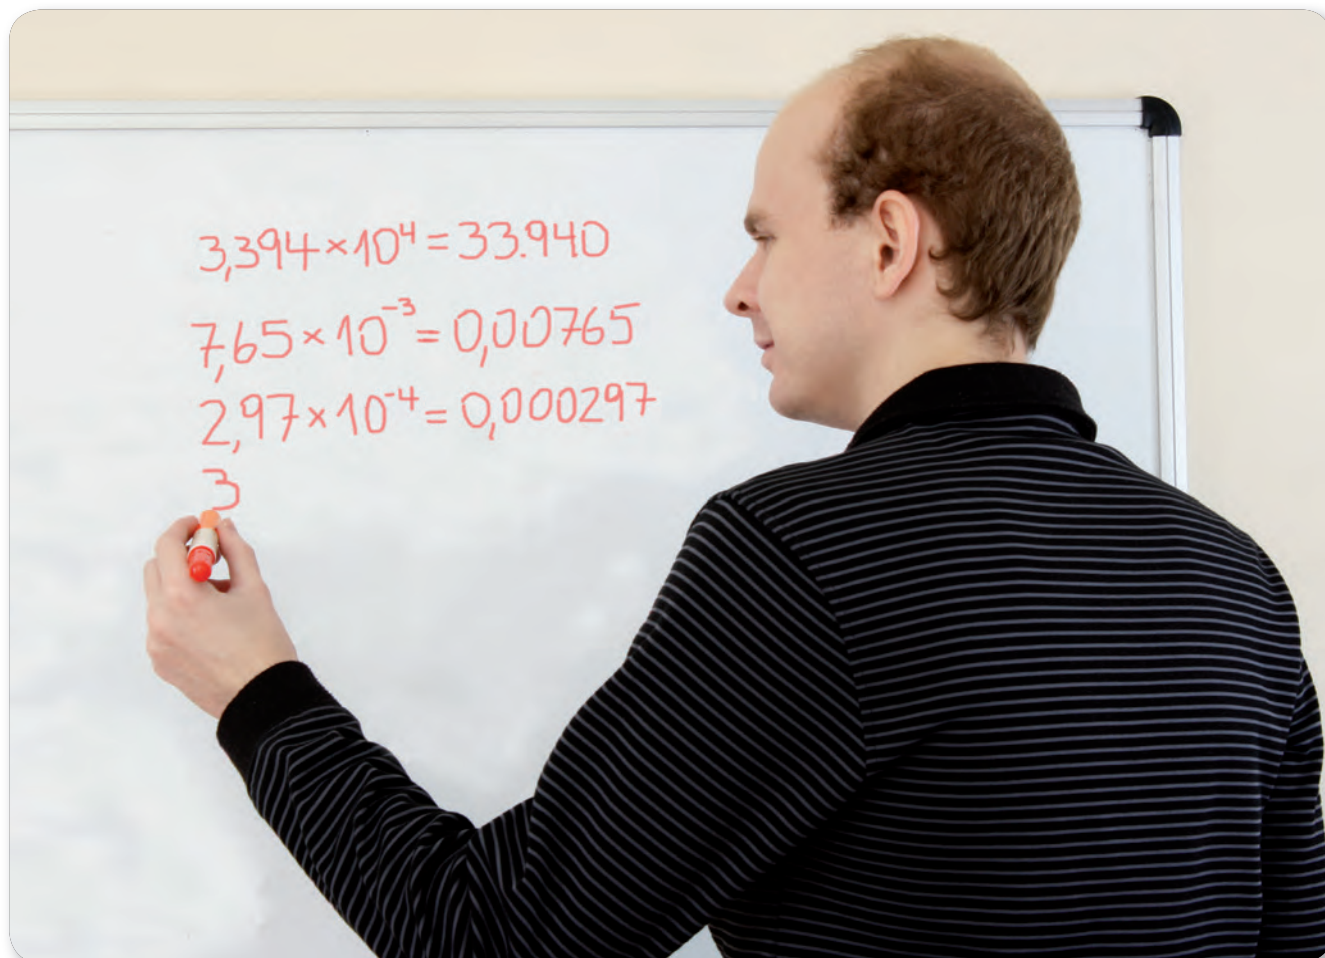 3,394 × 10⁴ = 33.940
7,65 × 10⁻³ = 0,00765
2,97 × 10⁻⁴ = 0,000297
3